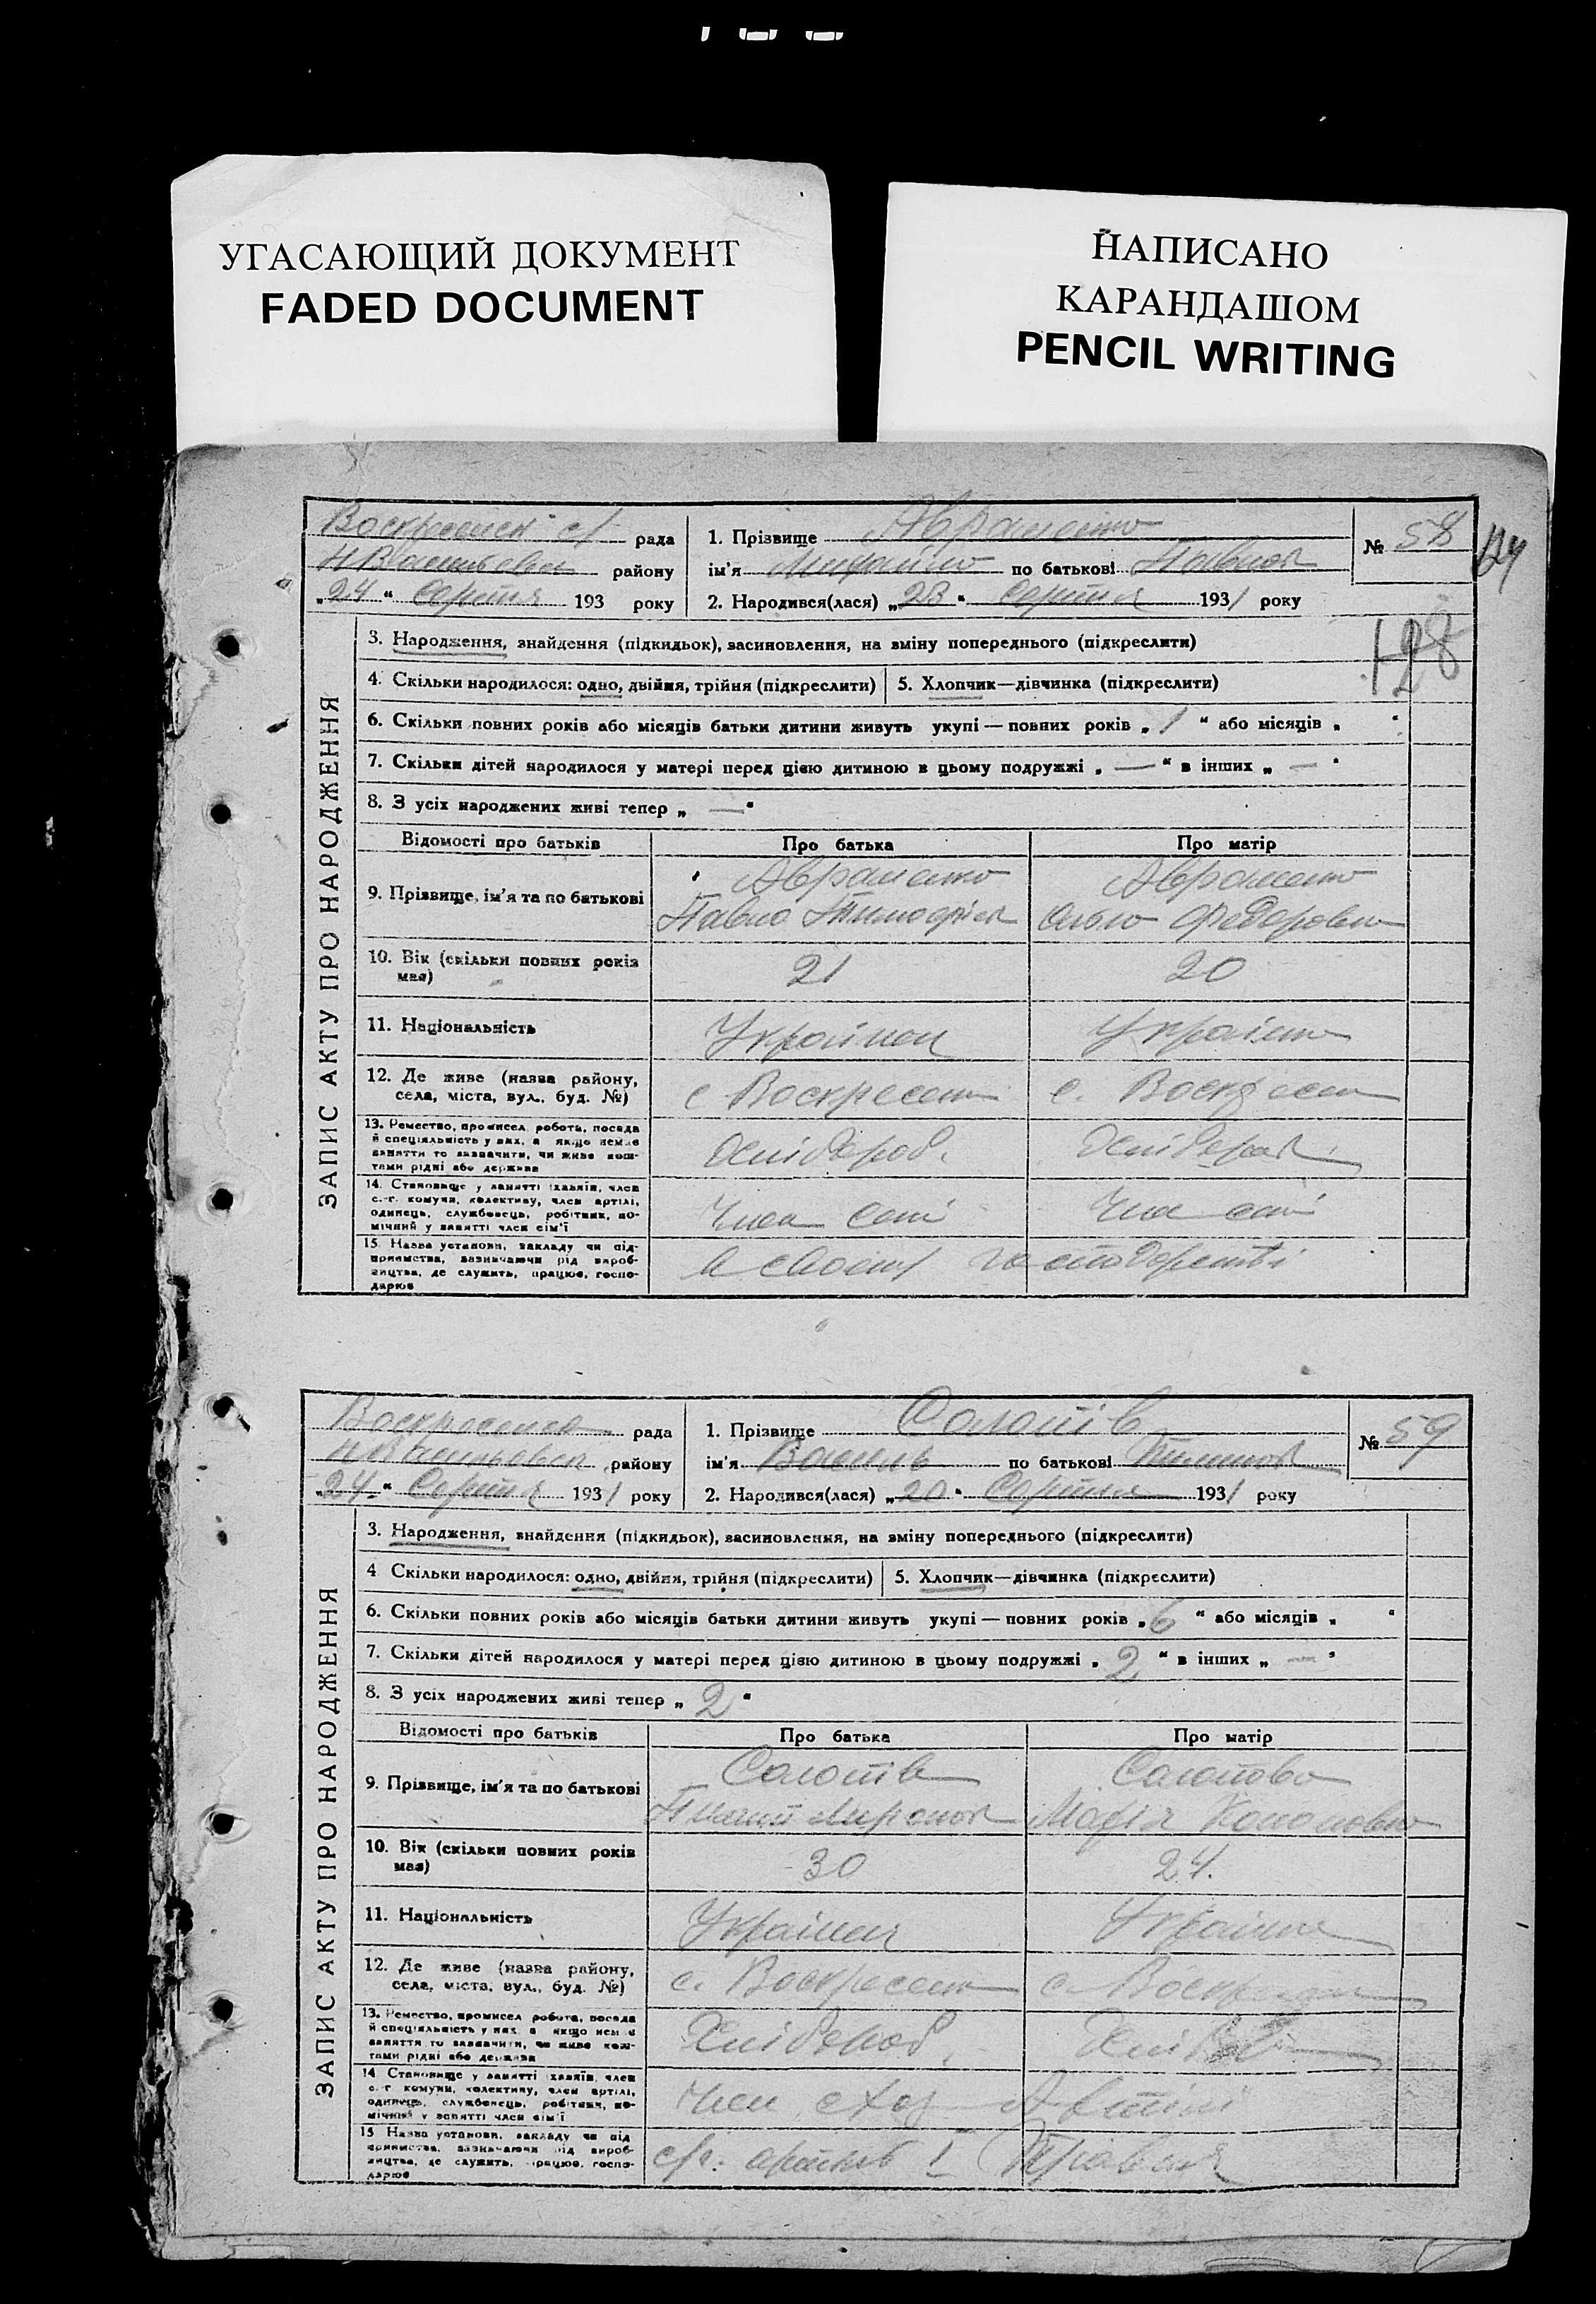 УГАСАЮЩИЙ ДОКУМЕНТ
FADED DOCUMENT
НАПИСАНО
КАРАНДАШОМ
PENCIL WRITING
ЗАПИС АКТУ ПРО НАРОДЖЕННЯ
Воскресенск с/ рада
району
„24“ Серпня 193 року
1. Прізвище Авраменко
ім'я Михайло по батькові Павлов
2. Народився(лася) „23“ Серпня 1931 року
№ 58
128
3. Народження, знайдення (підкидьок), засиновлення, на зміну попереднього (підкреслити)
4. Скільки народилося: одно, двійня, трійня (підкреслити)
5. Хлопчик—дівчинка (підкреслити)
6. Скільки повних років або місяців батьки дитини живуть укупі — повних років „1“ або місяців „ “
7. Скільки дітей народилося у матері перед цією дитиною в цьому подружжі „—“ в інших „—“
8. З усіх народжених живі тепер „—“
Відомості про батьків Про батька Про матір
9. Прізвище, ім'я та по батькові Авраменко Авраменко
Павло Тимофієв Федоровна
10. Вік (скільки повних років 21 20
має)
11. Національність Українец Українка
12. Де живе (назва району, с Воскресенка с. Воскресенка
села, міста, вул., буд. №)
13. Ремество, промисел, робота, посада
й спеціяльність у них, а якщо немає
заняття то зазначити, чи живе кош-
тами рідні або держави
Хлібороб. Хлібороб.
14. Становище у занятті: хазяїн, член
с.-г. комуни, колективу, член артілі,
одинець, службовець, робітник, по-
мічний у занятті член сім'ї
Член сімї Член сімї
15. Назва установи, закладу чи під-
приємства, зазначаючи рід вироб-
ництва, де служить, працює, госпо-
дарює
в своєму господарстві
ЗАПИС АКТУ ПРО НАРОДЖЕННЯ
Воскресенск рада
району
„24“ Серпня 1931 року
1. Прізвище Солотів
ім'я Василь по батькові
2. Народився(лася) „20“ Серпня 1931 року
№ 59
3. Народження, знайдення (підкидьок), засиновлення, на зміну попереднього (підкреслити)
4 Скільки народилося: одно, двійня, трійня (підкреслити)
5. Хлопчик—дівчинка (підкреслити)
6. Скільки повних років або місяців батьки дитини живуть укупі — повних років „6“ або місяців „ “
7. Скільки дітей народилося у матері перед цією дитиною в цьому подружжі „2“ в інших „—“
8. З усіх народжених живі тепер „2“
Відомості про батьків Про батька Про матір
9. Прізвище, ім'я та по батькові Солотів Солотова
Миронов Марія Кононовна
10. Вік (скільки повних років 30 24.
має)
11. Національність Українец Українка
12. Де живе (назва району, с. Воскресенка с. Воскресенка
села, міста, вул., буд. №)
13. Ремество, промисел робота, посада
й спеціяльність у них, а якщо немає
заняття то зазначити, чи живе кош-
тами рідні або держава
Хлібороб.
14 Становище у занятті: хазяїн, член
с.-г комуни, колективу, член артілі,
одинець, службовець, робітник, по-
мічний у занятті член сім'ї
Член Артілі
15 Назва установи, закладу чи під
приємства, зазначаючи рід вироб-
ництва, де служить, працює, госпо-
дарює
артиль